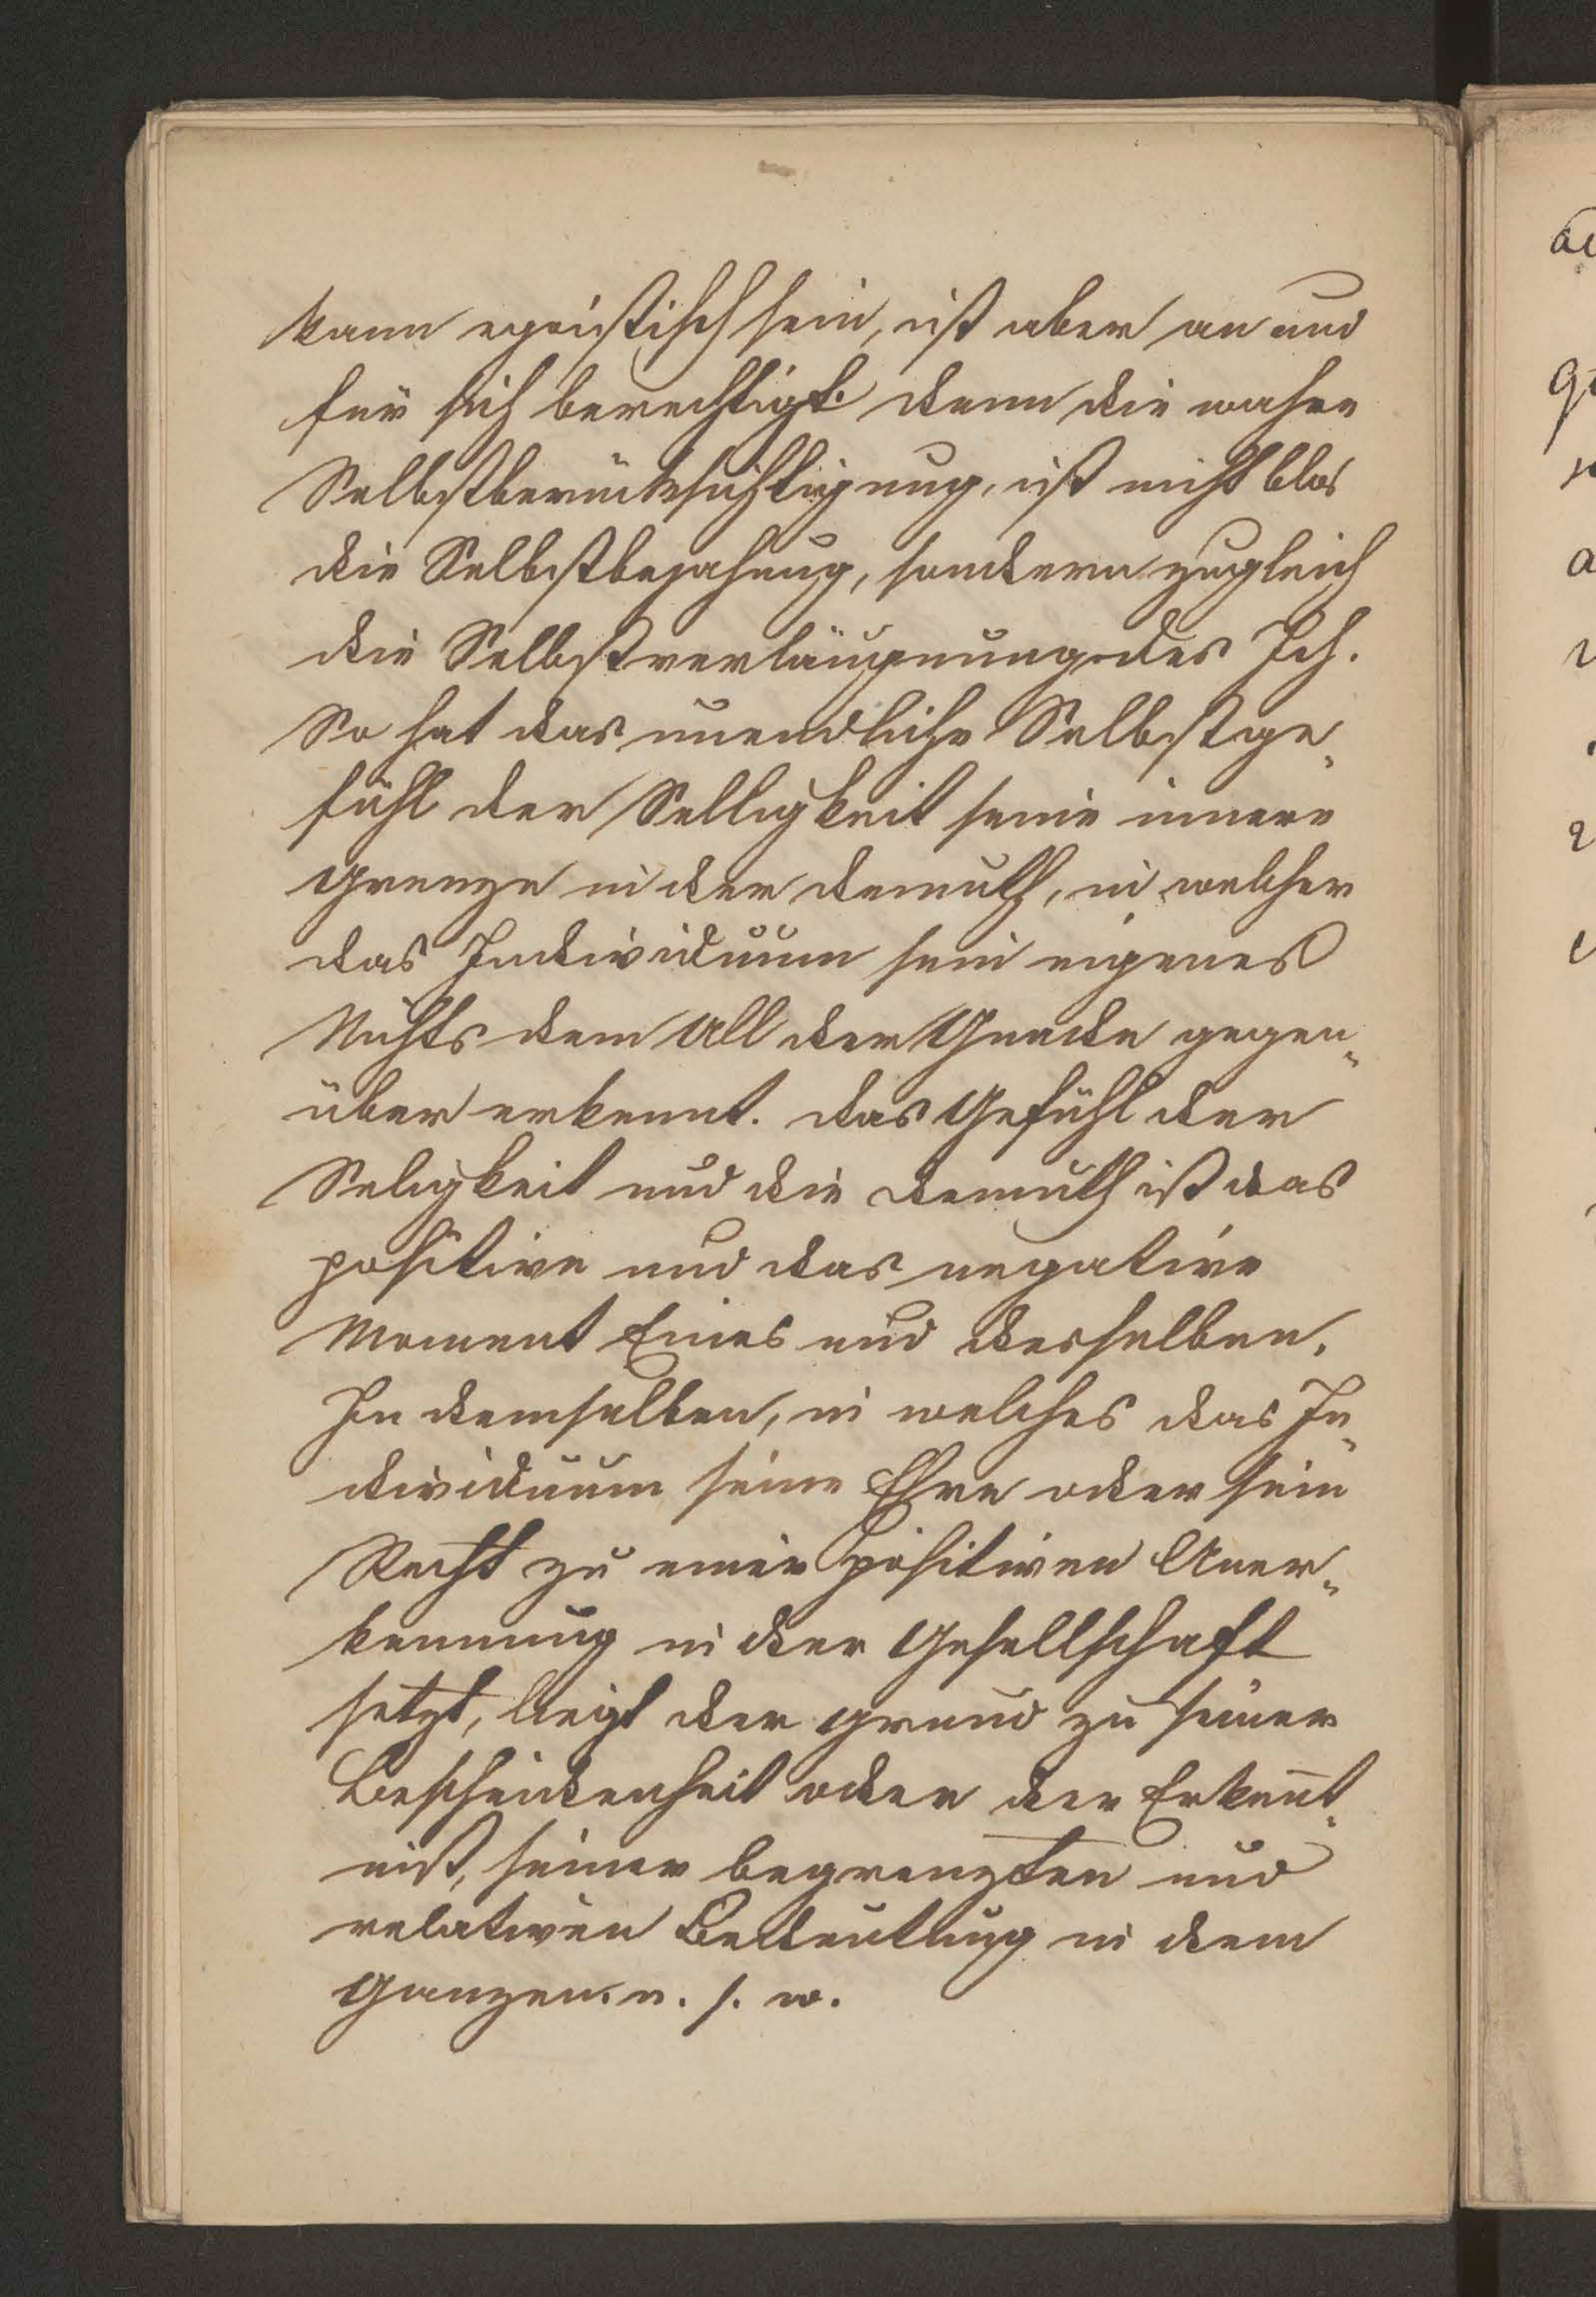 kann egoistisch sein, ist aber an und
für sich berechtigt. denn die wahre
Selbstberücksichtigung, ist nicht blos
die Selbstbejahung, sondern zugleich
die Selbstverläugnung des Ich.
So hat das unendliche Selbstge„
fühl der Selligkeit seine innere
Grenze in der Demuth, in welcher
das Individuum sein eigenes
Nichts dem All der Gnade gegen„
über erkennt. das Gefühl der
Seligkeit und die Demuth ist das
positive und das negative
Moment Eines und desselben.
In demselben, in welches das In„
dividuum seine Ehre oder sein
Recht zu einer positiven Aner„
kennung in der Gesellschaft
setzt, liegt der Grund zu seiner
Bescheidenheit oder der Erkennt„
niß, seiner begrenzten und
relativen Bedeutung in dem
Ganzen. u. s. w.